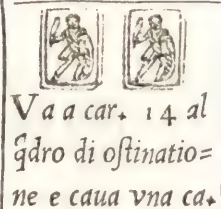 Va a car. 14 al
q̃dro di oſtinatio=
ne e caua vna ca.